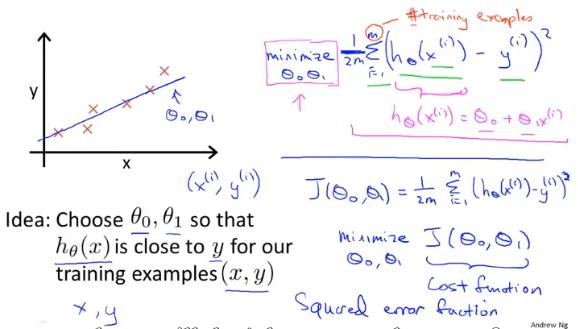 #training examples
minimize
θ₀ θ₁
1/2m Σ_{i=1}^{m} (h_θ(x^(i)) - y^(i))²
h_θ(x^(i)) = θ₀ + θ₁x^(i)
y
θ₀, θ₁
x
(x^(i), y^(i))
J(θ₀,θ₁) = 1/2m Σ_{i=1}^{m} (h_θ(x^(i)) - y^(i))²
Idea: Choose θ₀, θ₁ so that
h_θ(x) is close to y for our
training examples (x, y)
minimize J(θ₀, θ₁)
θ₀, θ₁
Cost function
x, y
Squared error function
Andrew Ng